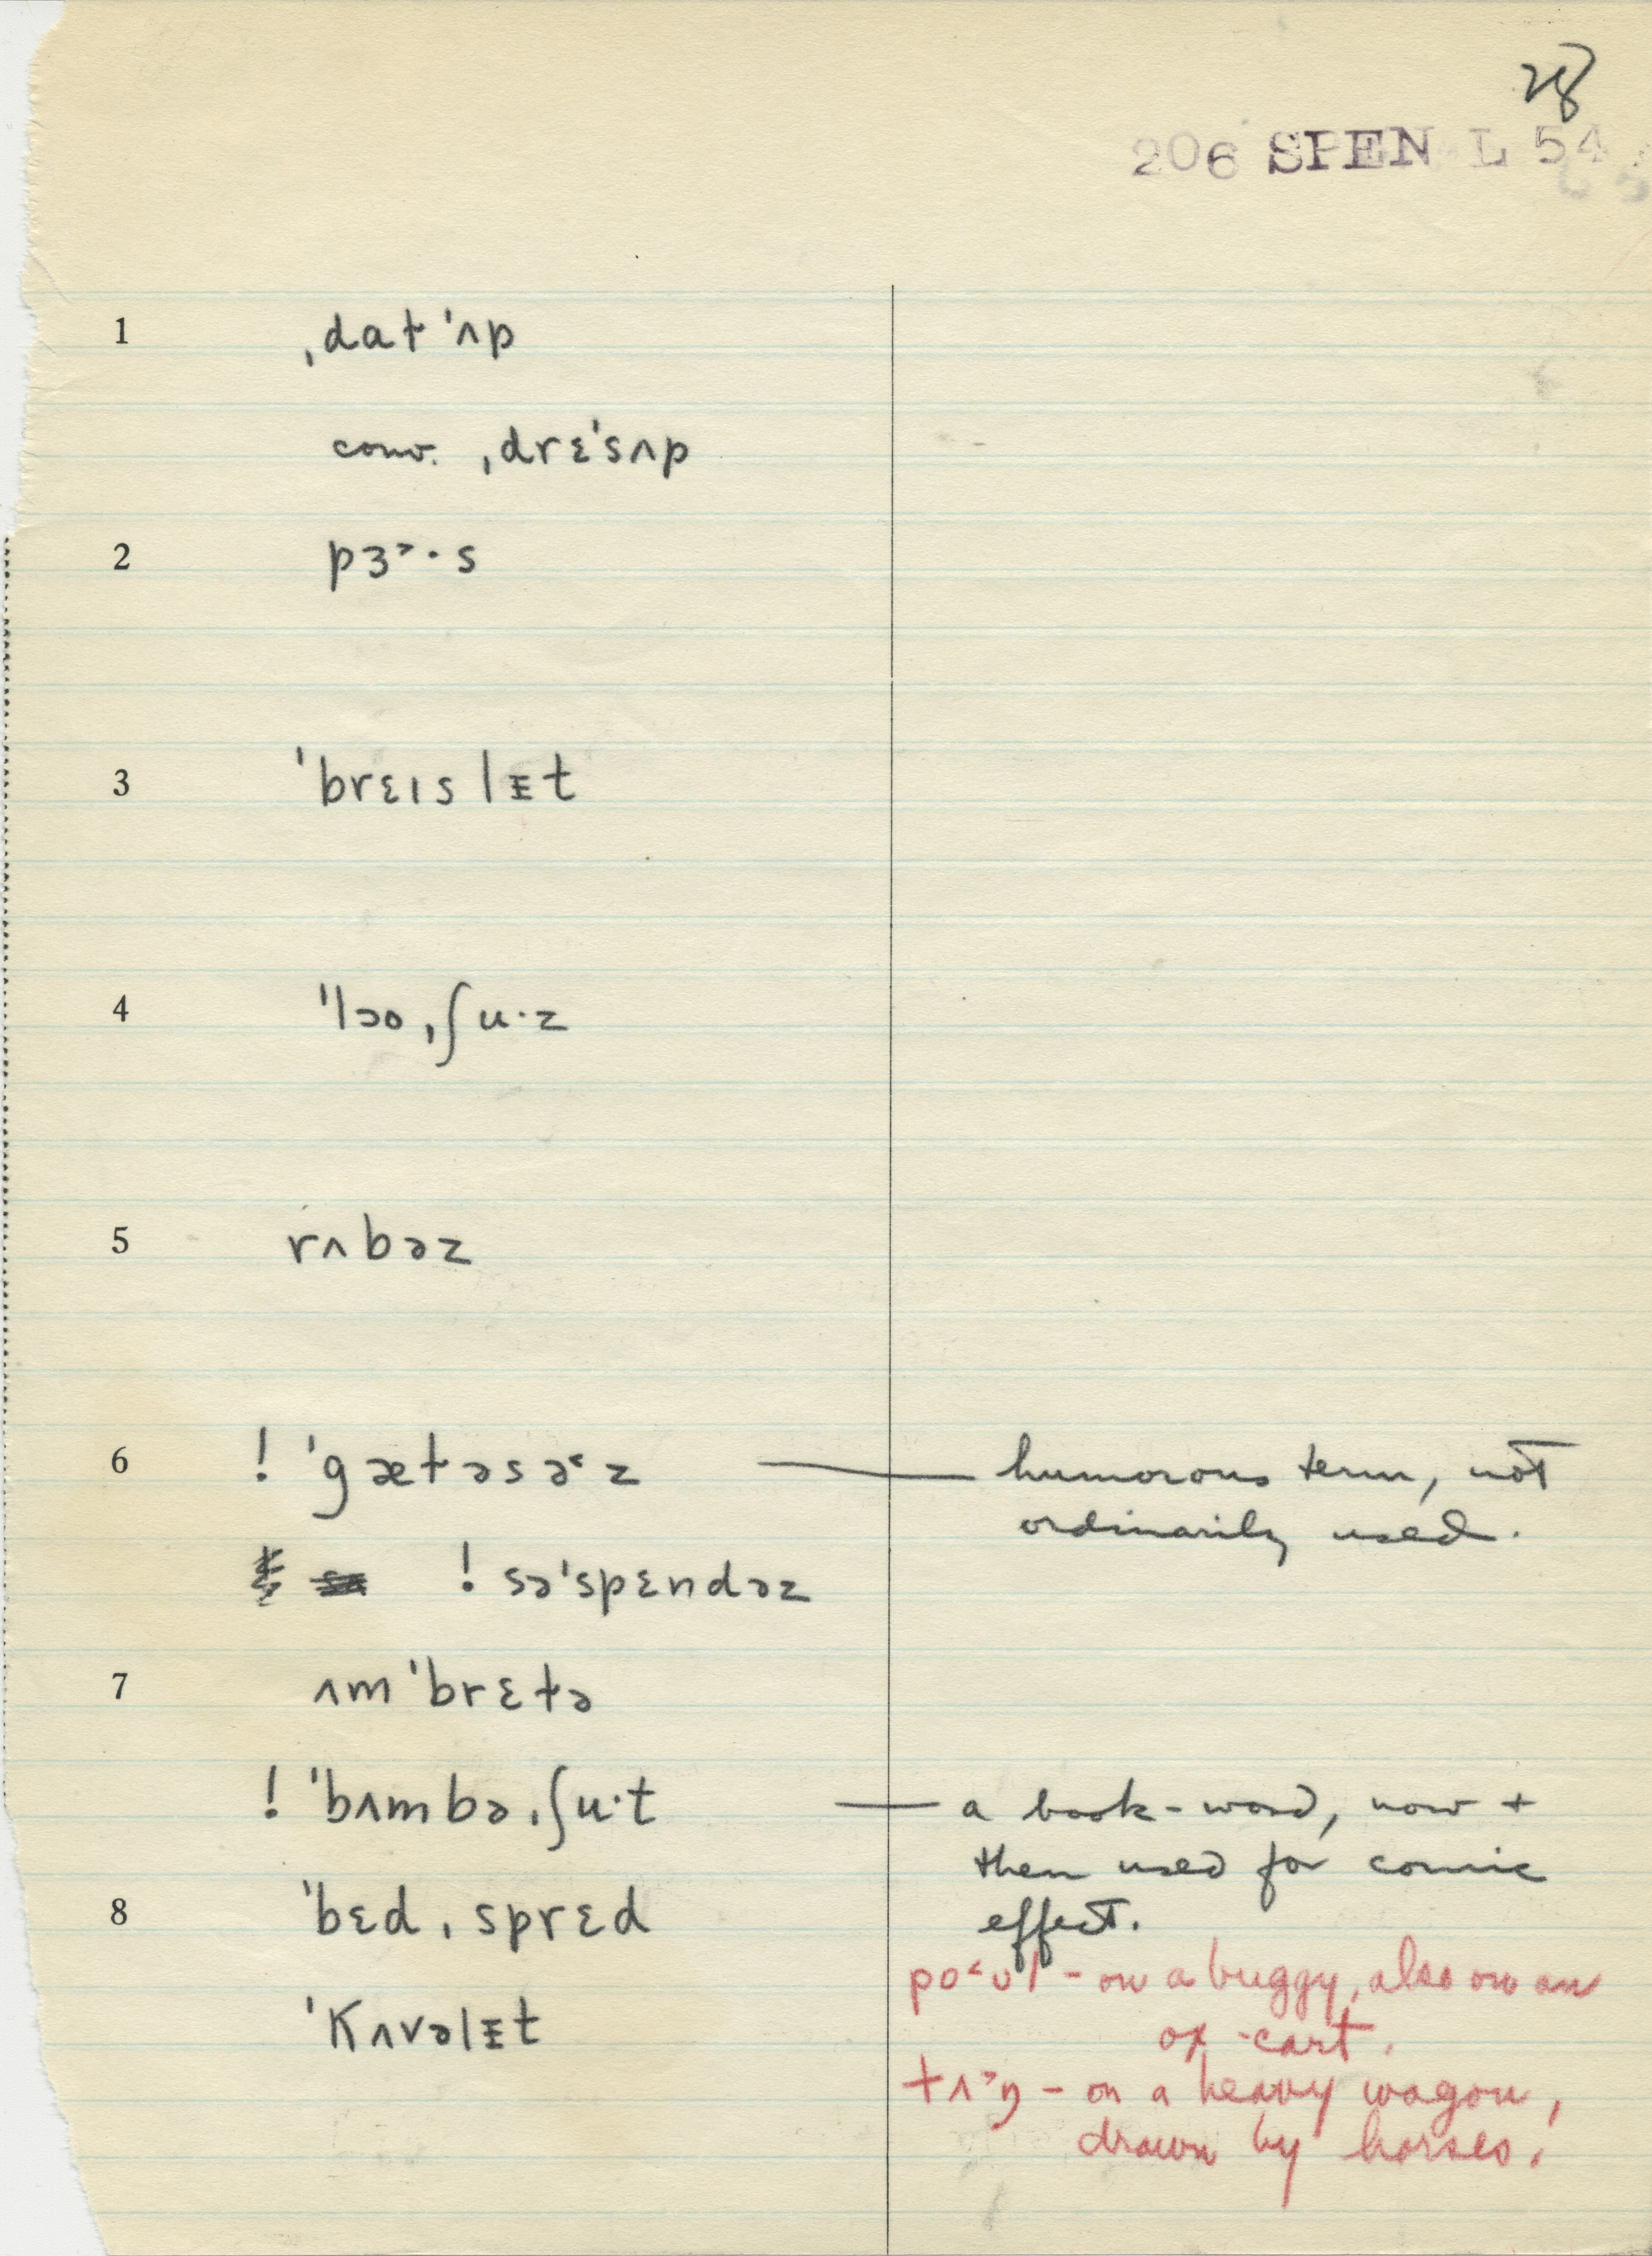 28
206 SPEN L 54
1 ˌdat ˈʌp
conv. ˌdrɛˈsʌp
2 pɜ˃·s
3 ˈbrɛɪs lᵻt
4 ˈˈlɔo ˌʃu·z
5 rʌbəz
6 ! ˈgætəsə˂z — humorous term, not
ordinarily used.
! səˈspɛndəz
7 ʌmˈbrɛtə
! ˈˈbʌmbə ˌʃu·t — a book-word, now +
then used for comic
effect.
8 ˈˈbɛd ˌsprɛd
po˂ʊl - on a buggy, also on an
ox-cart.
ˈKʌvəlᵻt
tʌ˃ŋ - on a heavy wagon,
drawn by horses.